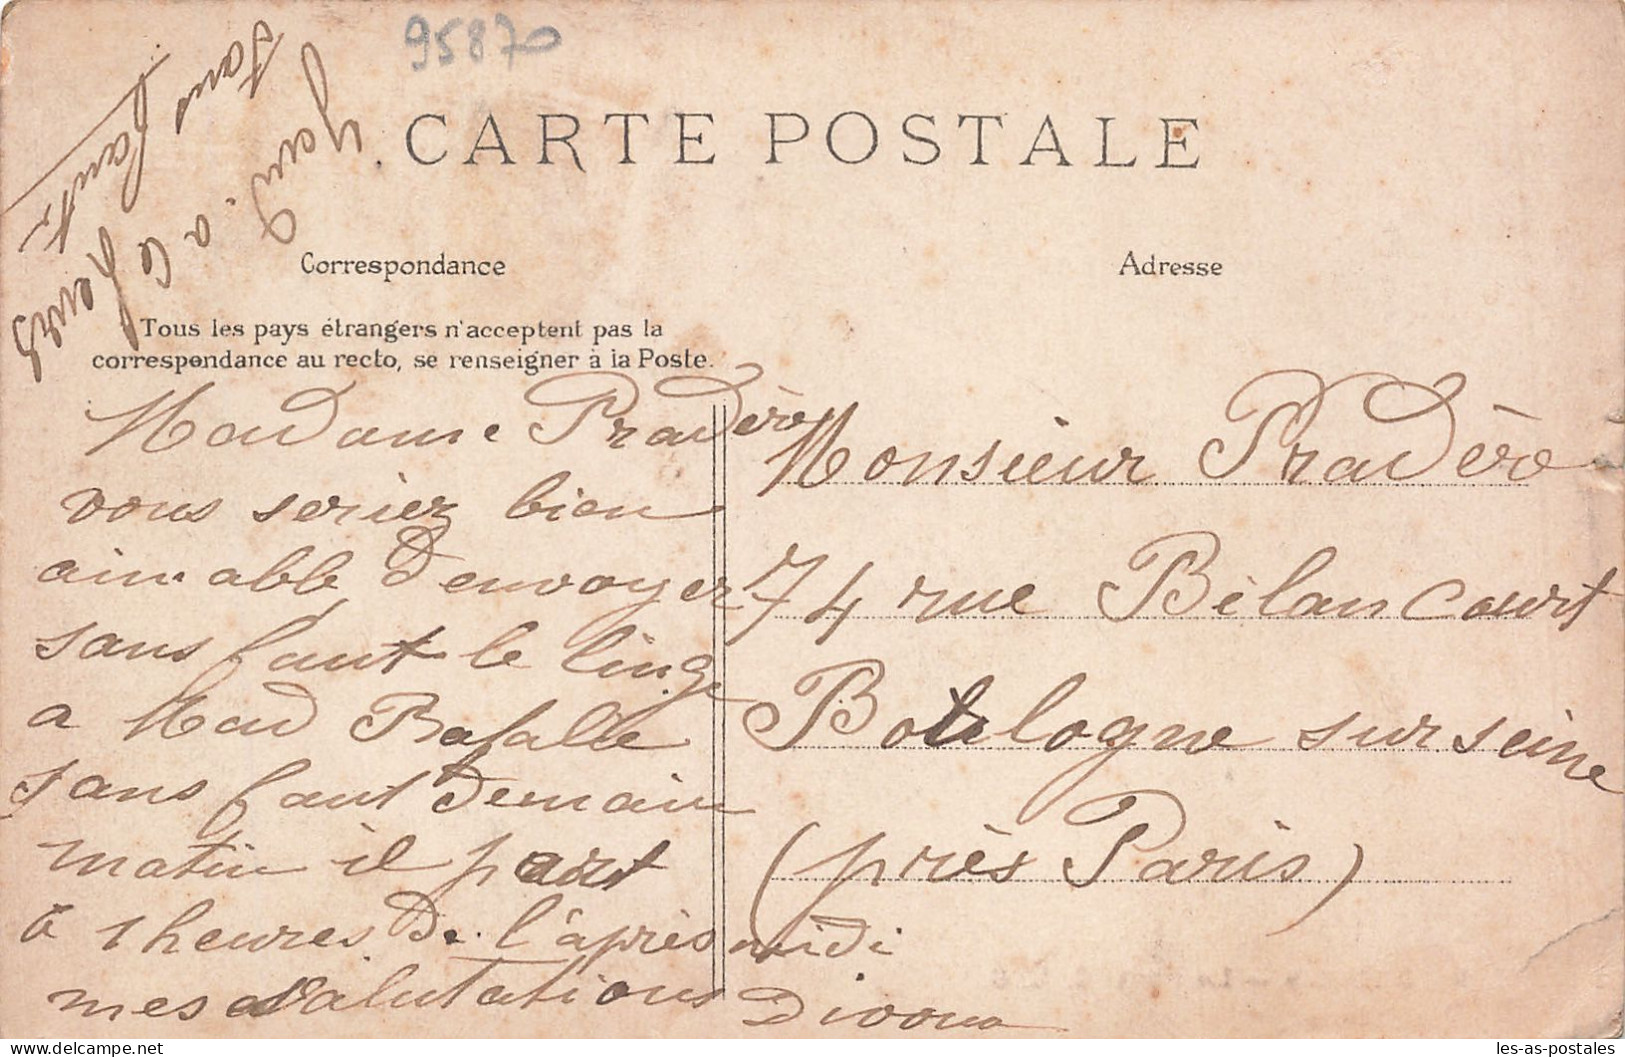 95870
CARTE POSTALE
Correspondance
Adresse
Tous les pays étrangers n'acceptent pas la
correspondance au recto, se renseigner à la Poste.
Madame Pradère
vous serier bien
aimabb d'envoyer
sans faut le linge
a Mad Rafalle
sans faut demain
matin il part
à 1 heures de l'après midi
mes salutations
Monsieur Pradère
74 rue Bèlancourt
Boulogne sur seine
(près Paris)
sans faut
a 6 heures
les-as-postales